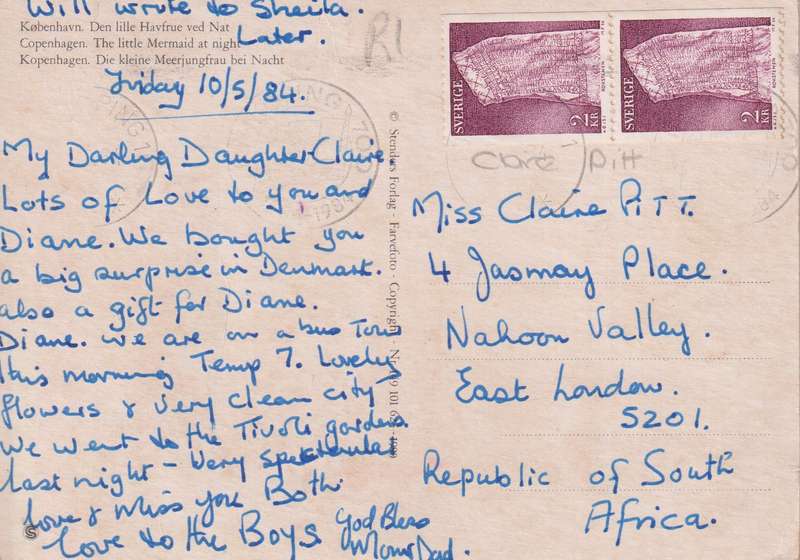 Will wrote to Sheila.
København. Den lille Havfrue ved Nat
Copenhagen. The little Mermaid at night
Kopenhagen. Die kleine Meerjungfrau bei Nacht
Later.
Friday 10/5/84.
My Darling Daughter Claire
Lots of Love to you and
Diane. We bought you
a big surprise in Denmark.
also a gift for Diane.
Diane. We are on a bus Tour
this morning Temp 7. Lovely
flowers & very clean city
We went to the Tivoli gardens
last night - very spektular
Love & Miss you Both
Love to the Boys God Bless
Mom & Dad.
© Stenders Forlag - Farvefoto - Copyright - Nr.
SVERIGE
2 KR
SVERIGE
2 KR
Claire Pitt
Miss Claire PITT.
4 Jasmay Place.
Nahoon Valley.
East London.
5201.
Republic of South
Africa.